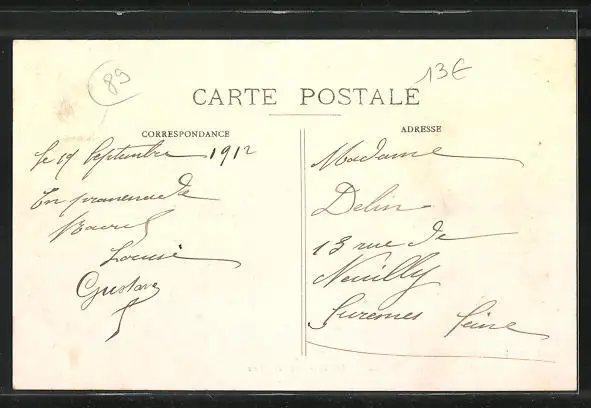 89
13€
CARTE POSTALE
CORRESPONDANCE
ADRESSE
le 19 Septembre 1912
En promenade
Louise
Gustave
Madame
Delin
13 rue de
Neuilly
Suresnes Seine